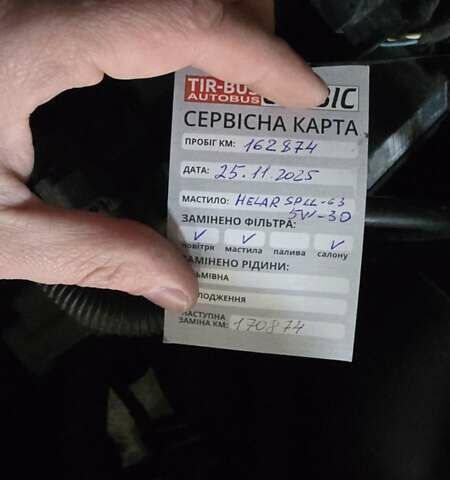 TIR-BUS
AUTOBUS
СЕРВІСНА КАРТА
ПРОБІГ КМ: 162874
ДАТА: 25.11.2025
МАСТИЛО: HELAR SP LL-03
5W-30
ЗАМІНЕНО ФІЛЬТРА:
✓ ✓ ✓
повітря мастила палива салону
ЗАМІНЕНО РІДИНИ:
НАСТУПНА
ЗАМІНА КМ: 170874